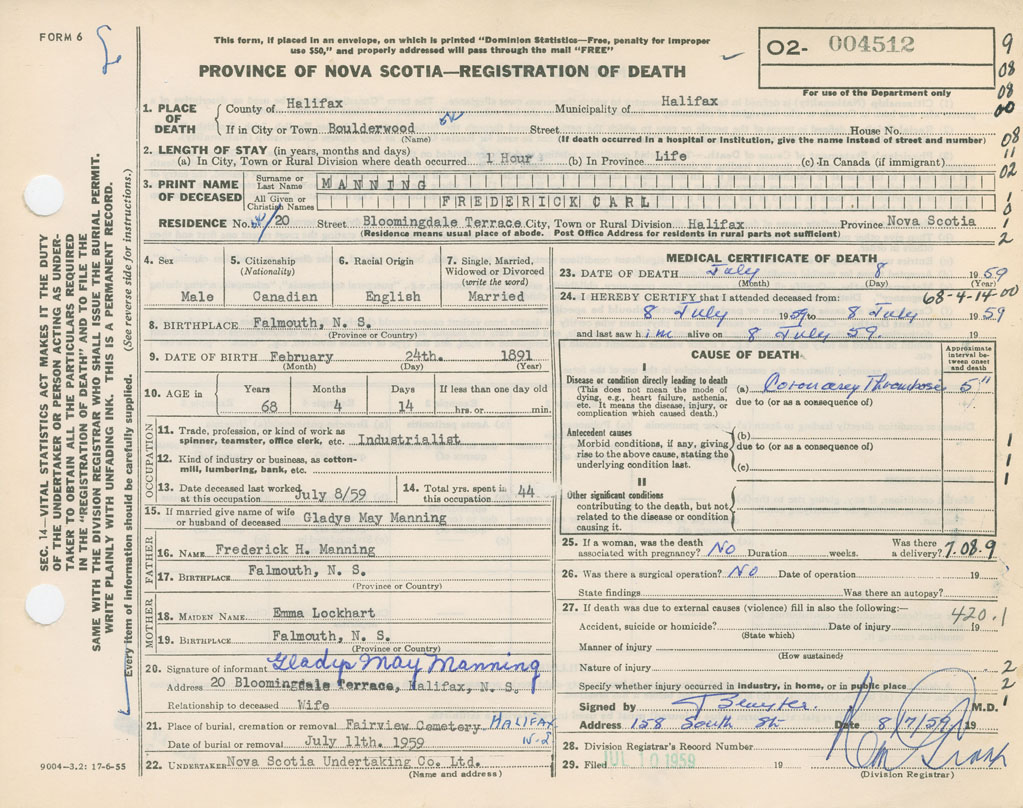 FORM 6
This form, if placed in an envelope, on which is printed "Dominion Statistics—Free, penalty for improper
use $50," and properly addressed will pass through the mail "FREE"
PROVINCE OF NOVA SCOTIA—REGISTRATION OF DEATH
O2- 004512
For use of the Department only
9
08
08
00
08
11
02
1
0
1
2
1. PLACE OF DEATH
County of Halifax Municipality of Halifax
If in City or Town Boulderwood Street House No.
(Name) (If death occurred in a hospital or institution, give the name instead of street and number)
2. LENGTH OF STAY (in years, months and days)
(a) In City, Town or Rural Division where death occurred 1 Hour (b) In Province Life (c) In Canada (if immigrant)
3. PRINT NAME OF DECEASED
Surname or Last Name MANNING
All Given or Christian Names FREDERICK CARL
RESIDENCE No. 20 Street Bloomingdale Terrace City, Town or Rural Division Halifax Province Nova Scotia
(Residence means usual place of abode. Post Office Address for residents in rural parts not sufficient)
4. Sex
Male
5. Citizenship
(Nationality)
Canadian
6. Racial Origin
English
7. Single, Married,
Widowed or Divorced
(write the word)
Married
8. BIRTHPLACE Falmouth, N. S.
(Province or Country)
9. DATE OF BIRTH February 24th. 1891
(Month) (Day) (Year)
10. AGE in
Years Months Days If less than one day old
68 4 14 hrs. or min.
OCCUPATION
11. Trade, profession, or kind of work as
spinner, teamster, office clerk, etc. Industrialist
12. Kind of industry or business, as cotton-
mill, lumbering, bank, etc.
13. Date deceased last worked
at this occupation July 8/59
14. Total yrs. spent in
this occupation 44
15. If married give name of wife
or husband of deceased Gladys May Manning
FATHER
16. NAME Frederick H. Manning
17. BIRTHPLACE Falmouth, N. S.
(Province or Country)
MOTHER
18. MAIDEN NAME Emma Lockhart
19. BIRTHPLACE Falmouth, N. S.
(Province or Country)
20. Signature of informant Gladys May Manning
Address 20 Bloomingdale Terrace, Halifax, N. S.
Relationship to deceased Wife
21. Place of burial, cremation or removal Fairview Cemetery HALIFAX
N-S
Date of burial or removal July 11th. 1959
22. UNDERTAKER Nova Scotia Undertaking Co. Ltd.
(Name and address)
MEDICAL CERTIFICATE OF DEATH
23. DATE OF DEATH July 8 1959
(Month) (Day) (Year)
68-4-14-00
24. I HEREBY CERTIFY that I attended deceased from:
8 July 1959 to 8 July 1959
and last saw him alive on 8 July 59. 19
CAUSE OF DEATH
Approximate
interval be-
tween onset
and death
I
Disease or condition directly leading to death
(This does not mean the mode of
dying, e.g., heart failure, asthenia,
etc. It means the disease, injury, or
complication which caused death.)
(a) Coronary Thrombosis 5"
due to (or as a consequence of)
Antecedent causes
Morbid conditions, if any, giving
rise to the above cause, stating the
underlying condition last.
(b)
due to (or as a consequence of)
(c)
1
1
1
II
Other significant conditions
contributing to the death, but not
related to the disease or condition
causing it.
25. If a woman, was the death
associated with pregnancy? No Duration weeks. Was there
a delivery? 7.08.9
26. Was there a surgical operation? No Date of operation
State findings Was there an autopsy?
27. If death was due to external causes (violence) fill in also the following:—
420.1
Accident, suicide or homicide? Date of injury 19
(State which)
Manner of injury
(How sustained)
Nature of injury
Specify whether injury occurred in industry, in home, or in public place
2
1
2
Signed by M.D.
Address 158 South St Date 8/7/59 19
28. Division Registrar's Record Number
29. Filed JUL 10 1959 19
(Division Registrar)
SEC. 14—VITAL STATISTICS ACT MAKES IT THE DUTY
OF THE UNDERTAKER OR PERSON ACTING AS UNDER-
TAKER TO OBTAIN ALL THE PARTICULARS REQUIRED
IN THE "REGISTRATION OF DEATH" AND TO FILE THE
SAME WITH THE DIVISION REGISTRAR WHO SHALL ISSUE THE BURIAL PERMIT.
WRITE PLAINLY WITH UNFADING INK. THIS IS A PERMANENT RECORD.
Every item of information should be carefully supplied. (See reverse side for instructions.)
9004-3.2: 17-6-55